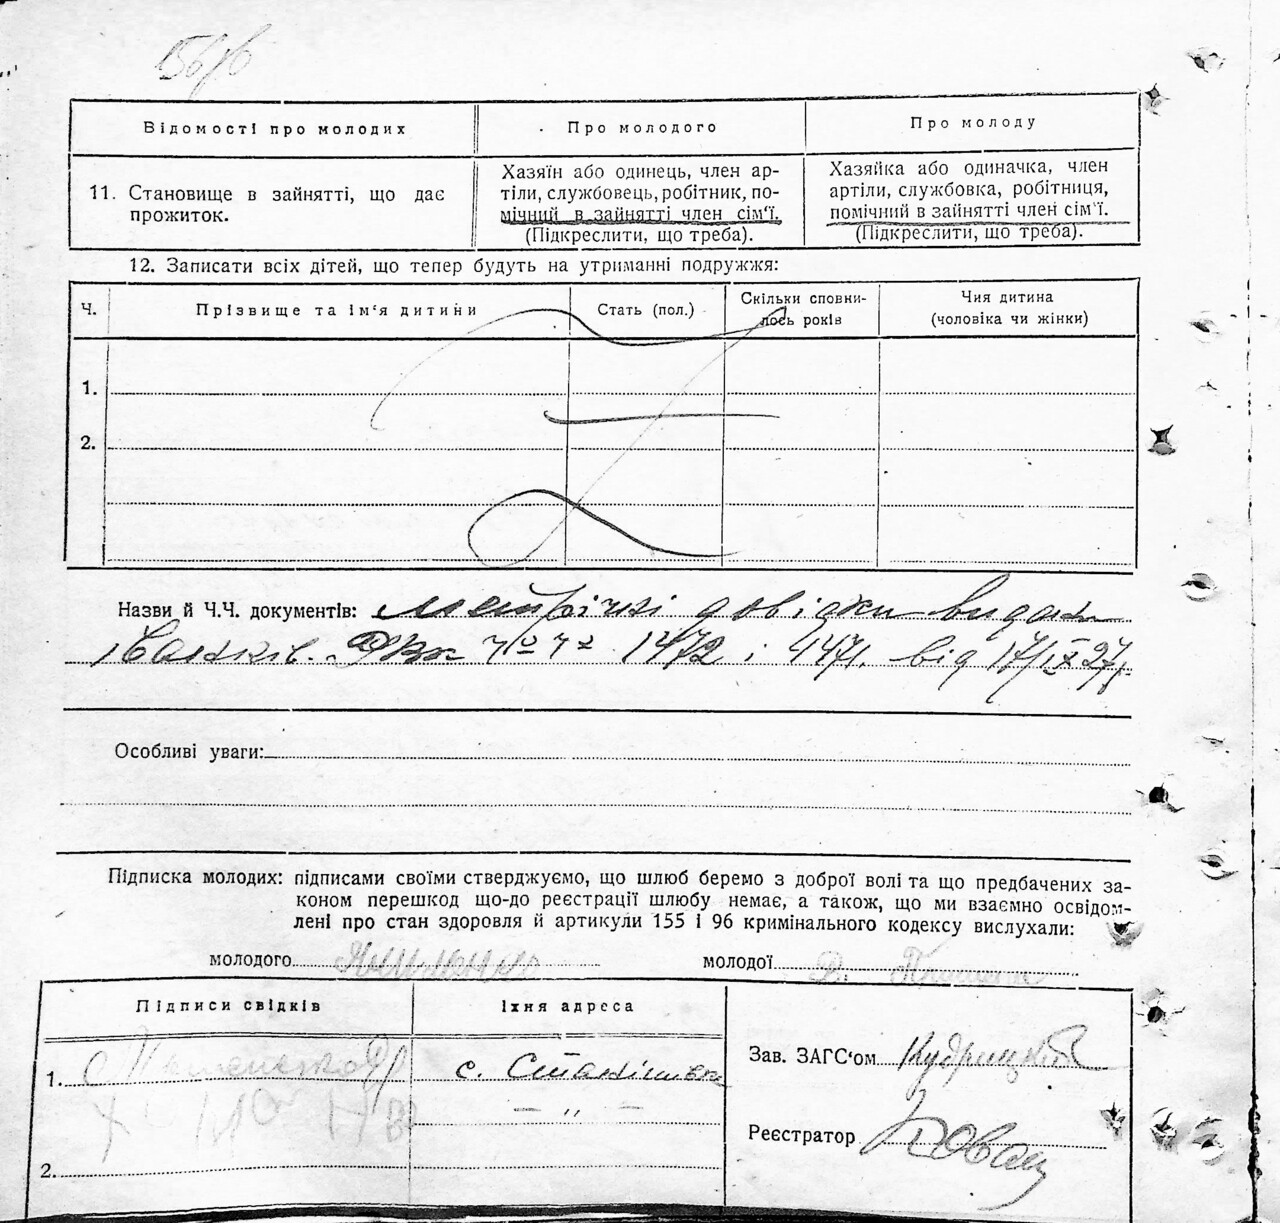 Відомості про молодих
Про молодого
Про молоду
11. Становище в зайнятті, що дає
прожиток.
Хазяїн або одинець, член ар-
тіли, службовець, робітник, по-
мічний в зайнятті член сім'ї.
(Підкреслити, що треба).
Хазяйка або одиначка, член
артіли, службовка, робітниця,
помічний в зайнятті член сім'ї.
(Підкреслити, що треба).
12. Записати всіх дітей, що тепер будуть на утриманні подружжя:
Ч.
Прізвище та ім'я дитини
Стать (пол.)
Скільки сповни-
лось років
Чия дитина
(чоловіка чи жінки)
1.
2.
Назви й Ч.Ч. документів: метричні довідки видані
1472 і 1471. від 17/IX 27 р.
Особливі уваги:
Підписка молодих: підписами своїми стверджуємо, що шлюб беремо з доброї волі та що предбачених за-
коном перешкод що-до реєстрації шлюбу немає, а також, що ми взаємно освідом-
лені про стан здоровля й артикули 155 і 96 кримінального кодексу вислухали:
молодого
молодої
Підписи свідків
Їхня адреса
1.
с. Станішівка
— „ —
2.
Зав. ЗАГС'ом Кудрицький
Реєстратор